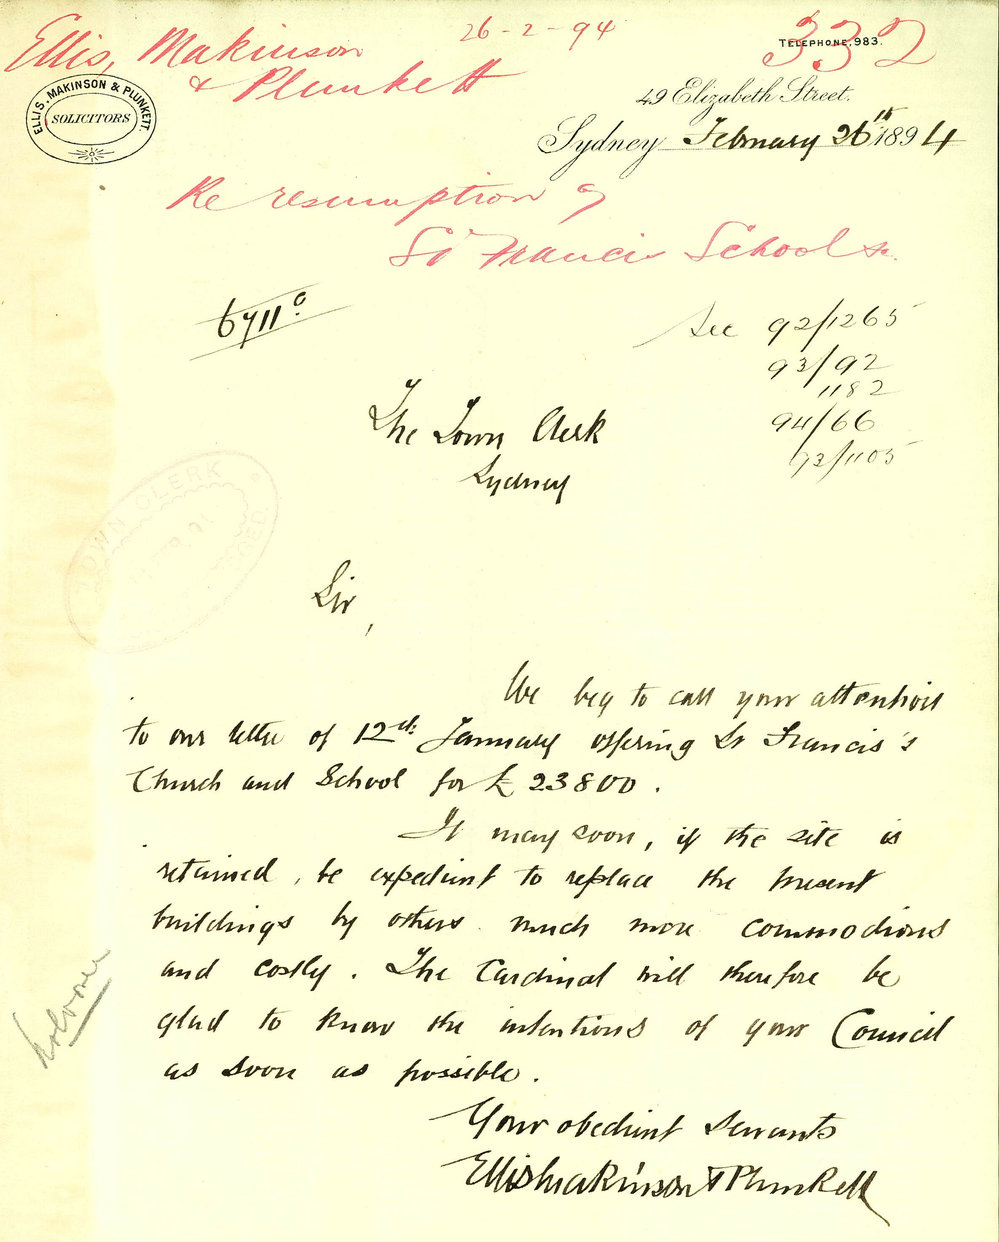 Ellis, Makinson
& Plunkett
26-2-94
332
TELEPHONE, 983.
ELLIS, MAKINSON & PLUNKETT.
SOLICITORS
49 Elizabeth Street.
Sydney February 26th 1894
Re resumption of
St Francis Schools.
See 92/1265
93/92
1182
94/66
The Town Clerk
Sydney
TOWN CLERK
Sir,
We beg to call your attention
to our letter of 12th January offering St Francis's
Church and School for £23800.
It may soon, if the site is
retained, be expedient to replace the present
buildings by others much more commodious
and costly. The Cardinal will therefore be
glad to know the intentions of your Council
as soon as possible.
Your obedient servants
Ellis Makinson & Plunkett